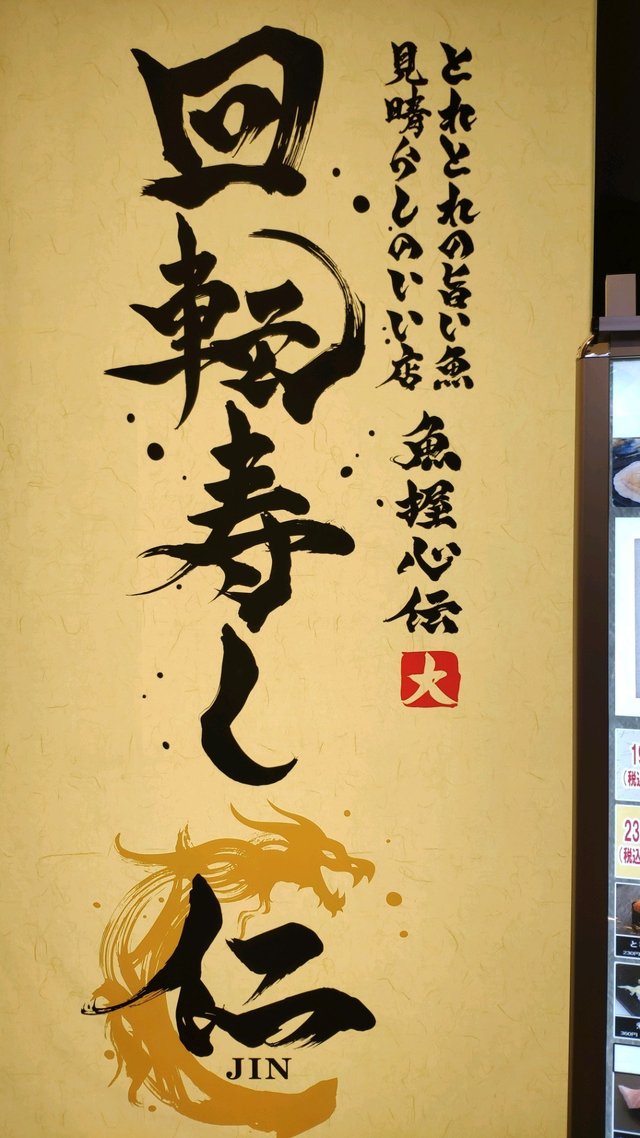 とれとれの旨い魚
見晴らしのいい店
魚握心伝
大
回転寿し
仁
JIN
(税込
23
(税込
230円
360円